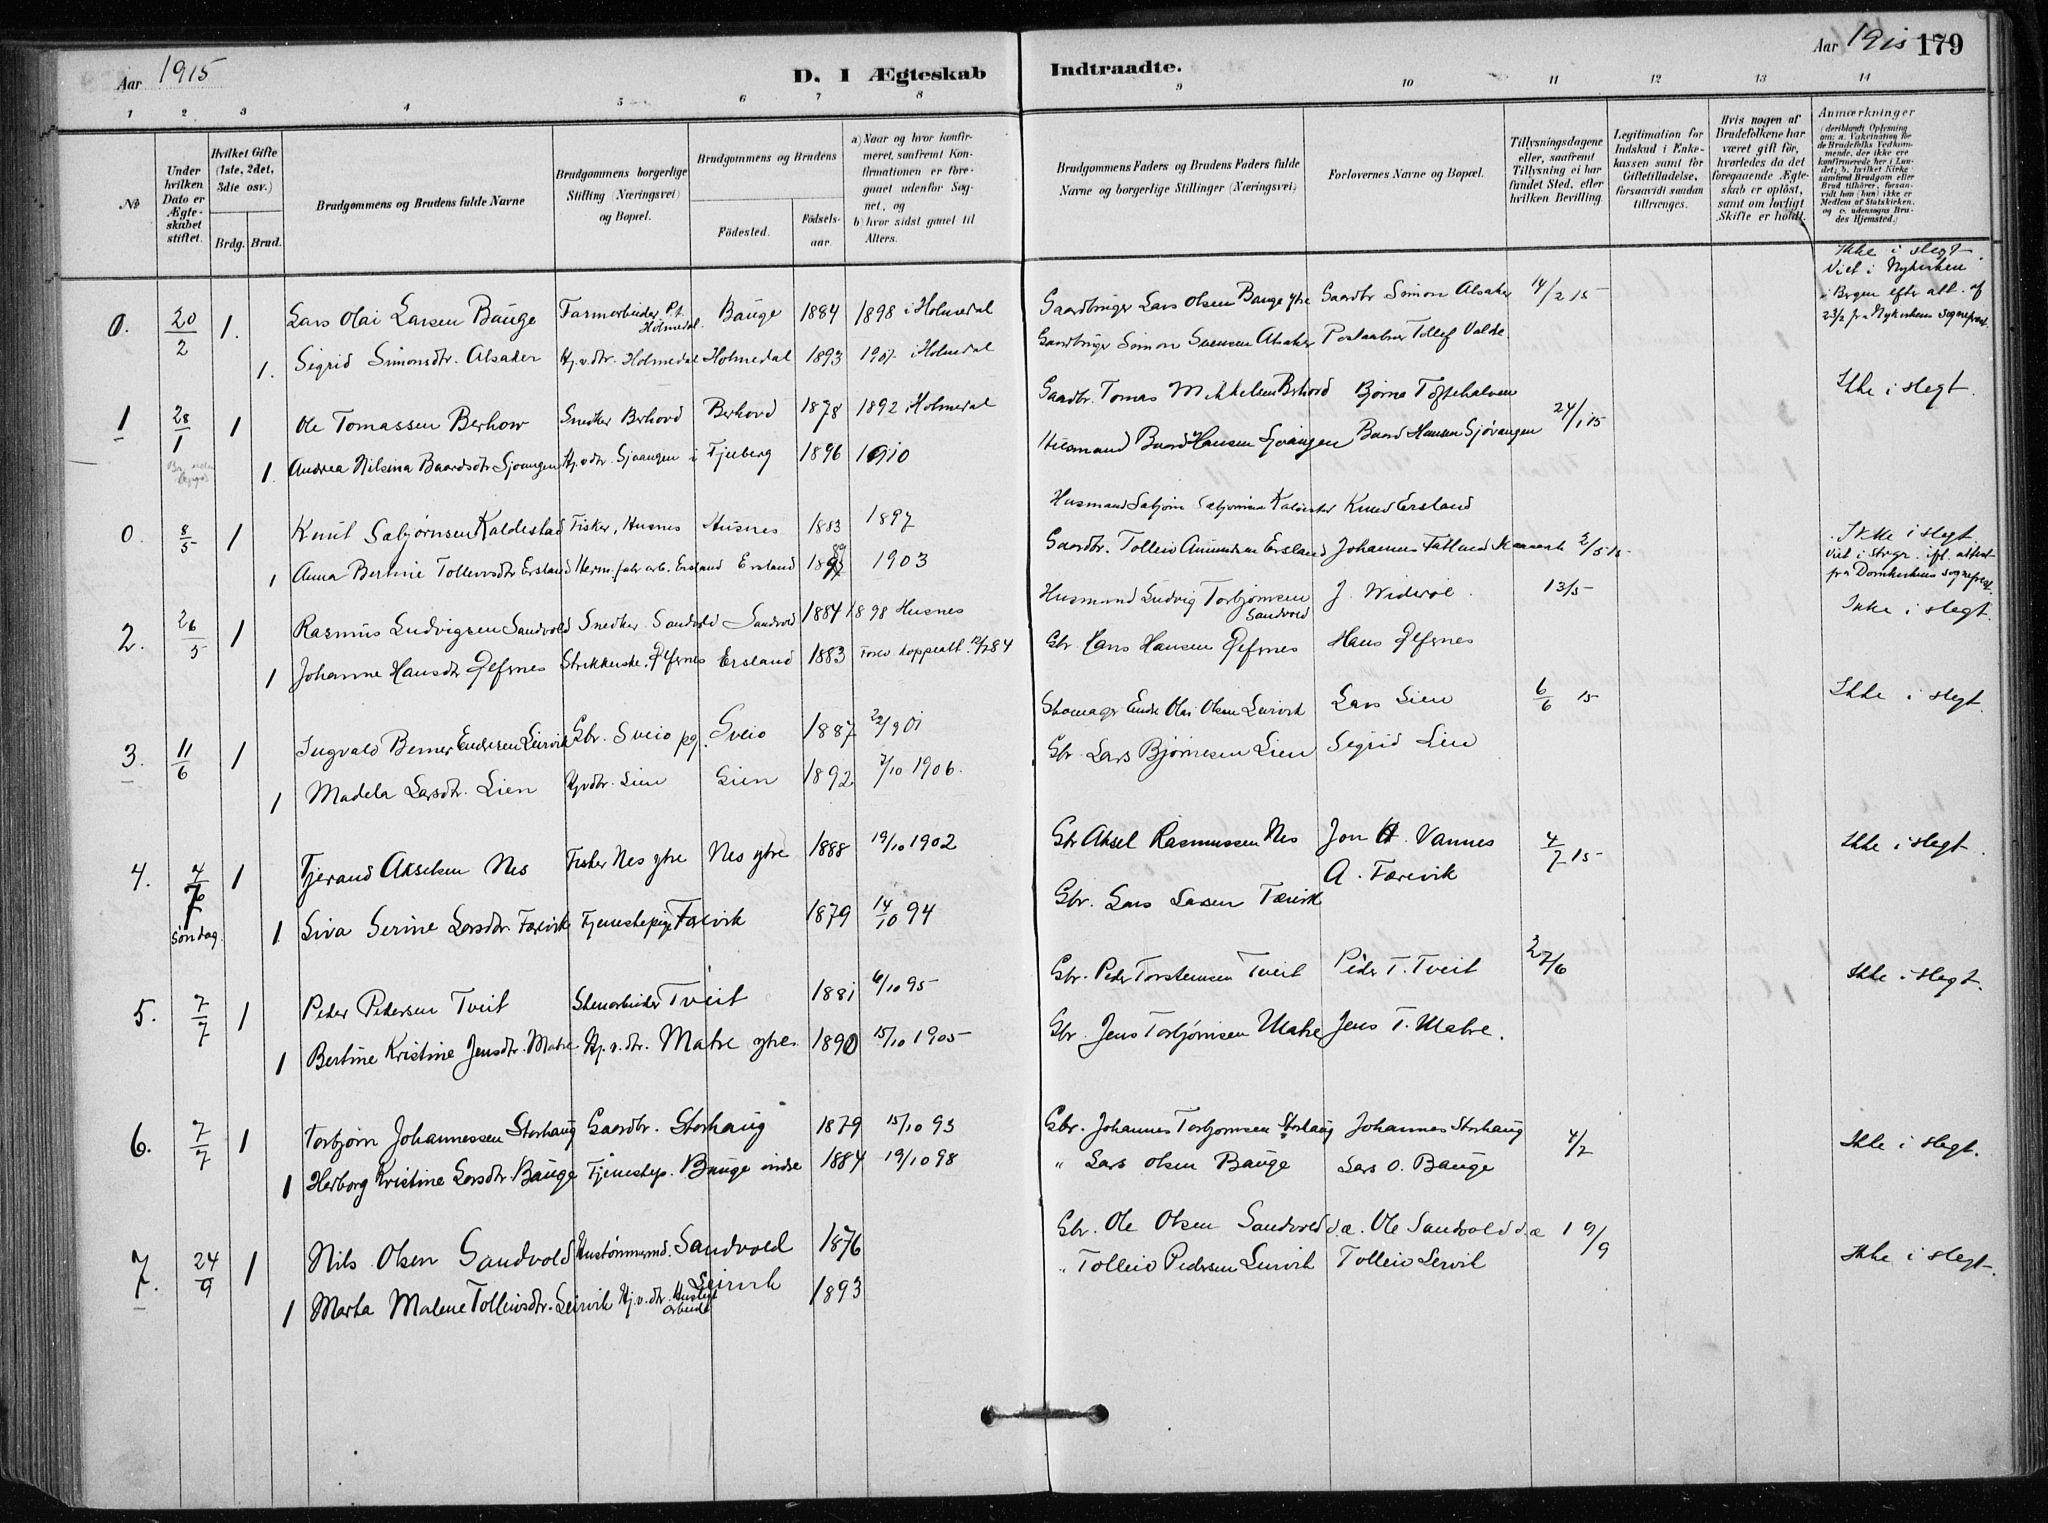 Aar 1915
D. I Ægteskab Indtraadte.
Aar 1915 179
1 2 3 4 5 6 7 8 9 10 11 12 13 14
No
Under hvilken Dato er Ægteskabet stiftet.
Hvilket Gifte (1ste, 2det, 3die osv.)
Brdg. Brud.
Brudgommens og Brudens fulde Navne
Brudgommens borgerlige Stilling (Næringsvei) og Bopæl.
Brudgommens og Brudens
Födested. Födselsaar.
a) Naar og hvor konfirmeret, saafremt Konfirmationen er foregaaet udenfor Sognet, og
b) hvor sidst gaaet til Alters.
Brudgommens Faders og Brudens Faders fulde Navne og borgerlige Stillinger (Næringsvei)
Forlovernes Navne og Bopæl.
Tillysningsdagene eller, saafremt Tillysning ei har fundet Sted, efter hvilken Bevilling.
Legitimation for Indskud i Enkekassen samt for Giftetilladelse, forsaavidt saadan tiltrænges.
Hvis nogen af Brudefolkene har været gift för, hvorledes da det foregaaende Ægteskab er oplöst, samt om lovligt Skifte er holdt.
Anmærkninger (deriblandt Oplysning om: a. Vakcination for de Brudefolks Vedkommende, der ikke ere konfirmerede her i Landet; b. hvilket Kirkesamfund Brudgom eller Brud tilhörer, forsaavidt han (hun) ikke er Medlem af Statskirken, og c. udensogns Brudes Hjemsted.)
0. 20/2 1. Lars Olai Larsen Bauge Farmarbeider P.t. Holmedal. Bauge 1884 1898 i Holmedal Gaardbruger Lars Olsen Bauge ytre Gaardbr Simon Alsaker 14/2 15 Ikke i slegt. Viet i Nykirken i Bergen efter att. af 23/2 fra Nykirkens Sogneprest.
1. Sigrid Simonsdtr. Alsaker Hj.v.dtr. Holmedal Holmedal 1893 1907. i Holmedal Gaardbruger Simon Svensen Alsaker Postaabner Tollef Valde.
1 28/1 1 Ole Tomassen Berhow Snedker Berhovd Berhovd 1878 1892 i Holmedal Gaardbr. Tomas Mikkelsen Berhovd Bjørne Toftehalven 24/1 15 Ikke i slegt.
1. Andrea Nilsina Baardsdtr Sjoangen Hj.v.dtr. Sjoangen i Fjelberg 1896 1910 Husmand Baard Hansen Sjoangen Baard Hansen Sjøvangen
0. 8/5 1 Knut Sabjørnsen Kaldestad Fisker, Husnes Husnes 1883 1897 Husmand Sabjørn Sabjørnsen Knud Ersland
1 Anna Bertine Tolleivsdtr Ersland Herm. fabr. arb. Ersland Ersland 1889 1903 Gaardbr. Tolleiv Amundsen Ersland Johannes Fatland 2/5 15 Ikke i slegt Viet i Stvgr. ifl. attest fra Domkirkens sogneprest.
2. 26/5 1 Rasmus Ludvigsen Sandvold Snedker. Sandvold Sandvold 1884 1898 Husnes Husmand Ludvig Torbjørnsen Sandvold J. Widerøe. 13/5 Ikke i slegt.
1 Johanne Hansdtr Øfernes Strikkerske, Øfernes Ersland 1883 Forev. koppeatt. 12/7 84 Gbr. Hans Hansen Øfernes Hans Øfernes
3. 11/6 1 Ingvald Berner Endresen Leirvik Gbr. Sveio pg. Sveio 1887 22/9 01 Skomager Endre Olai Olsen Leirvik Lars Lien 6/6 15 Ikke i slegt.
1 Madela Larsdtr. Lien Hjvdtr. Lien Lien 1892 7/10 1906. Gbr. Lars Bjørnesen Lien Sigrid Lien
4. 4/7 Söndag. 1 Tjerand Akselsen Nes Fisker Nes ytre Nes ytre 1888 19/10 1902 Gbr Aksel Rasmussen Nes Jon A. Vannes 4/7 15 Ikke i slegt.
1 Siva Serine Larsdtr. Færevik Tjenestepige Færevik 1879 14/10 94 Gbr. Lars Larsen Færevik A. Færevik
5. 7/7 1 Peder Pedersen Tveit Stenarbeider Tveit 1881 6/10 95 Gbr. Peder Torsteinsen Tveit Peder T. Tveit 27/6 Ikke i slegt.
1 Bertine Kristine Jensdtr. Matre Hj.v.dtr. Matre ytre 1890 15/10 1905 Gbr Jens Torbjørnsen Matre Jens T. Matre.
6. 7/7 1 Torbjørn Johannessen Storhaug Gaardbr. Storhaug 1879 15/10 93 Gbr. Johannes Torbjørnsen Storhaug Johannes Storhaug 4/7 Ikke i slegt.
1 Herborg Kristine Larsdtr Bauge Tjenestep. Bauge indre 1884 19/10 98 " Lars Olsen Bauge Lars O. Bauge
7. 24/9 1 Nils Olsen Sandvold Hustømmermd. Sandvold 1876 Gbr. Ole Olsen Sandvold d.æ. Ole Sandvold d.æ 19/9 Ikke i slegt.
1 Marta Malene Tolleivsdtr. Leirvik Hj.v.dtr. Husligt arbeide Leirvik 1893 " Tolleiv Pedersen Leirvik Tolleiv Lervik